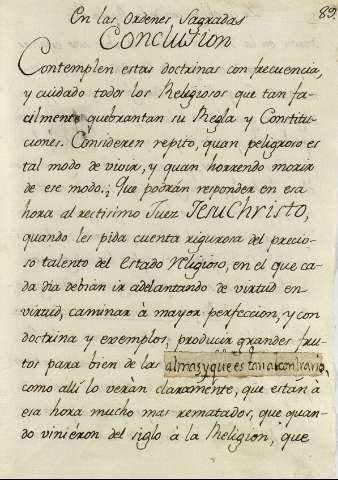 En las Ordenes Sagradas 89.
Conclusion
Contemplen estas doctrinas con frecuencia,
y cuidado todos los Religiosos que tan fa-
cilmente quebrantan su Regla y Constitu-
ciónes. Consideren repito, quan peligroso es
tal modo de vivir, y quan horrendo morir
de ese modo. ¿Que podrán responder en esa
hora al rectisimo Juez JesuChristo,
quando les pida cuenta rigurosa del precio-
so talento del Estado Religioso, en el que ca-
da dia debian ir adelantando de virtud en
virtud, caminar à mayor perfeccion, y con
doctrina y exemplos, producir grandes fru-
tos para bien de las almas y que estan al contrario,
como alli lo veràn claramente, que estàn à
esa hora mucho mas rematados, que quan-
do viniéron del siglo à la Religion, que